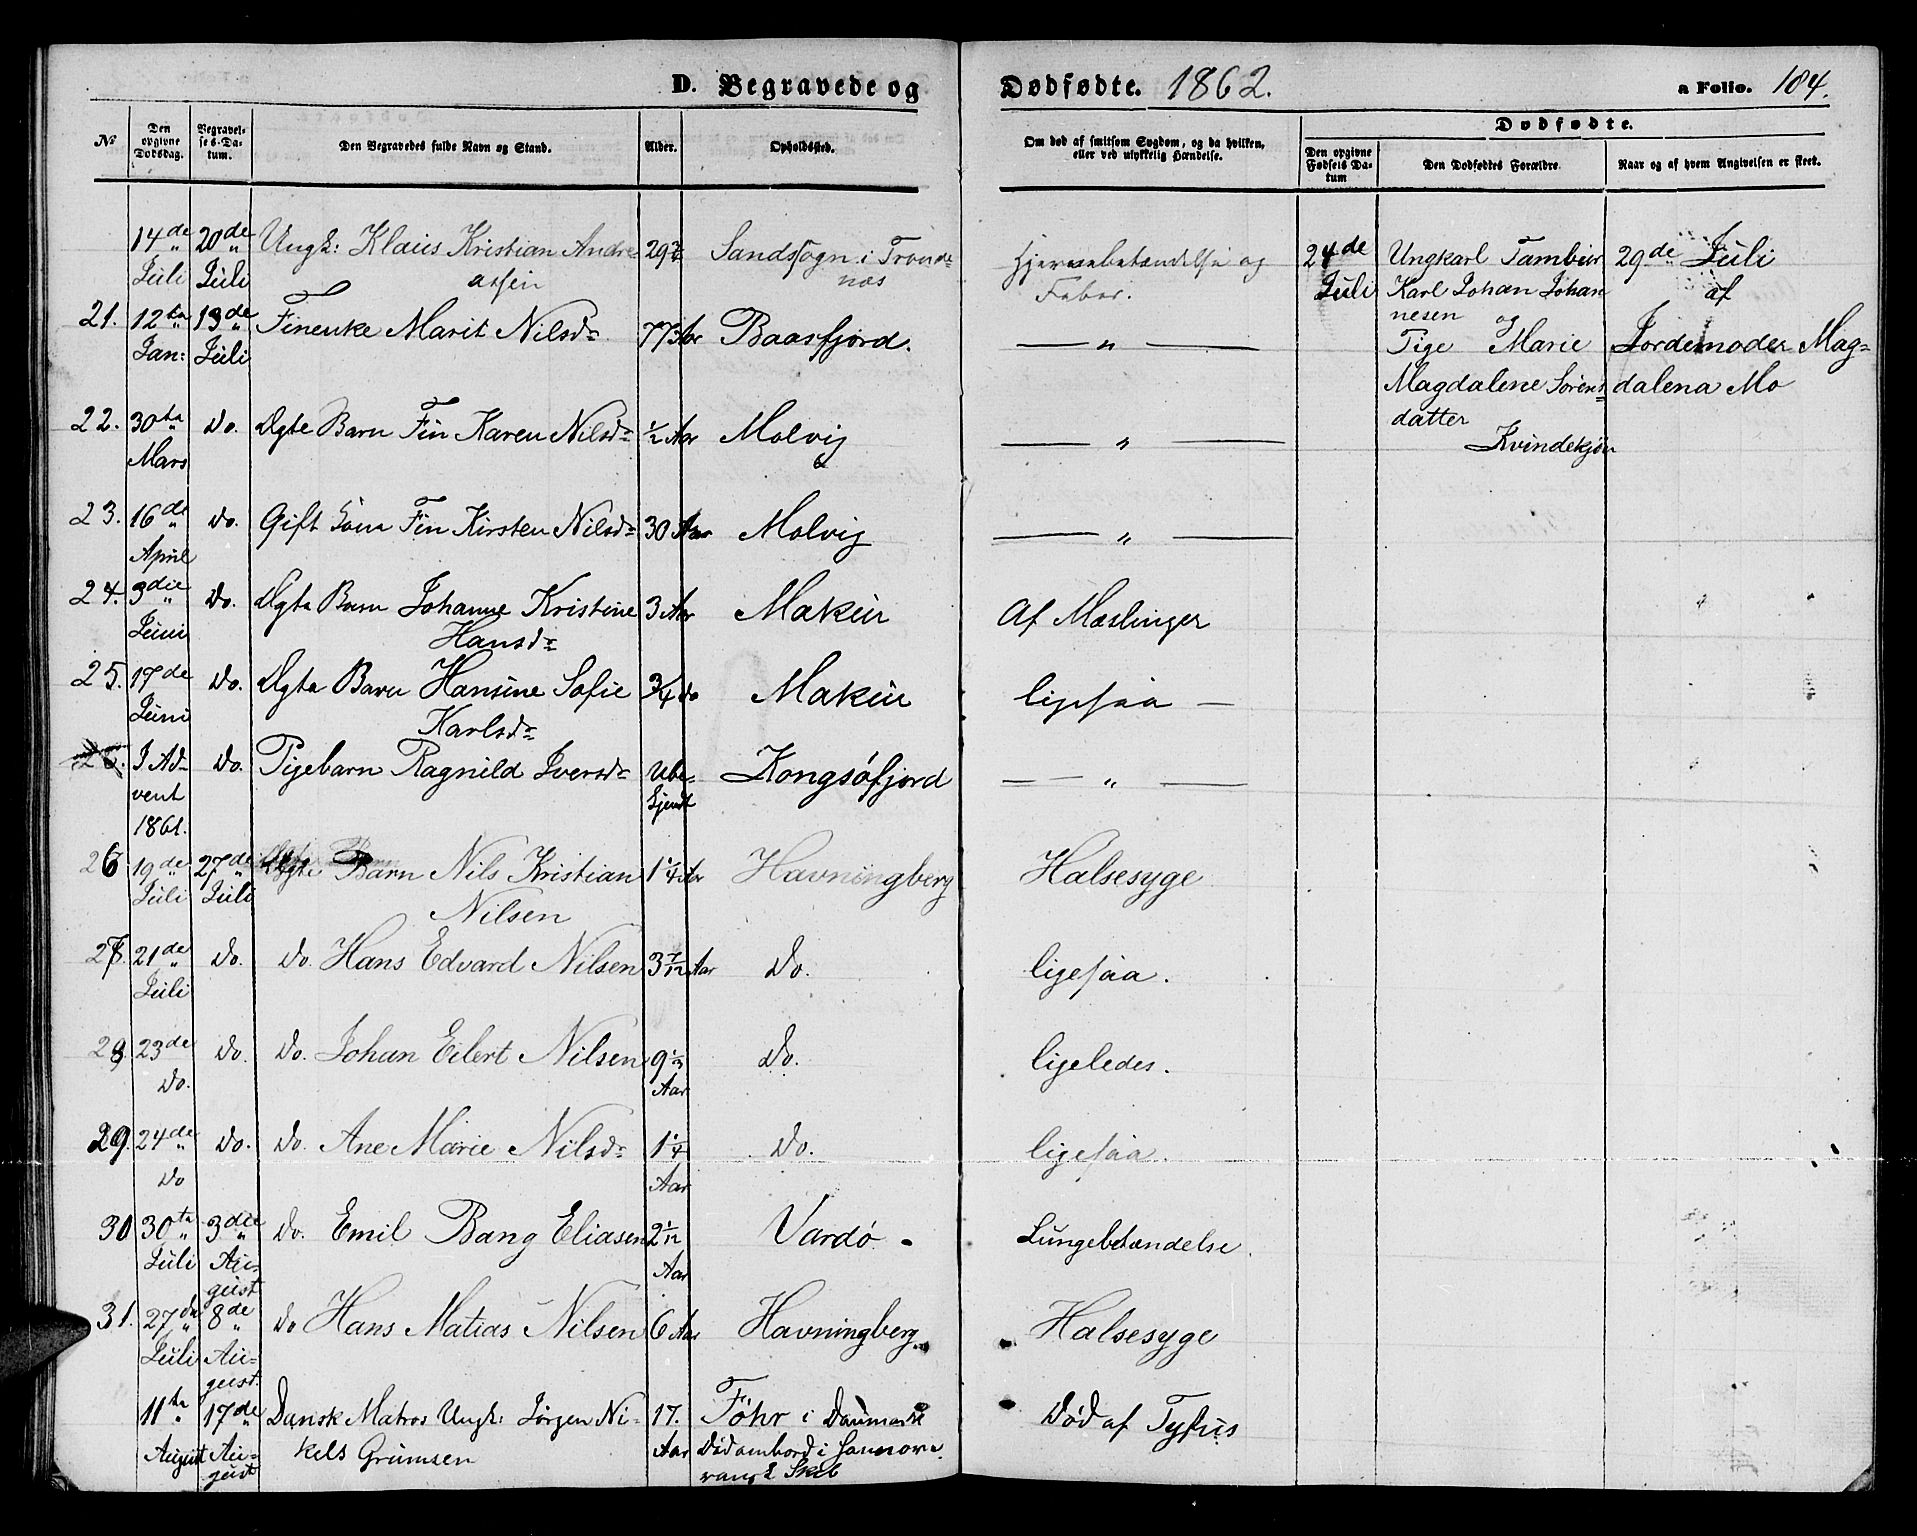 D. Begravede og Dødfødte. 1862. a Folio. 104.
Dødfødte.
№ Den opgivne Dødsdag. Begravelses-Datum. Den Begravedes fulde Navn og Stand. Alder. Opholdssted. Om død af smitsom Sygdom, og da hvilken, eller ved ulykkelig Hændelse. Den opgivne Fødsels Datum Den Dødfødtes Forældre. Naar og af hvem Angivelsen er skeet.
14de 20de Ungk: Klaus Kristian Andre- 29 Sandsogn i Tronde- Hjernebetændelse og 24de Ungkarl Tambur 29de Juli
Juli Juli assen næs Feber. Juli Karl Johan Johan af
nesen
21. 12te 13de Finenke Marit Nilsd= Aar Baasfjord. — " — Pige Marie Jordemoder Mag=
Jan: Juli
Magdalene Sørens dalena Mo
datter
22. 30te Do. Ægte Barn Fin Karen Nilsd= 1/2 Aar Molvig — " — Kvindekjøn
Mars
23. 16de Do. Gift Kona Fin Kirsten Nilsd= 30 Aar Molvig — " —
April
24. 3die Do. Ægte Barn Johanne Kristine 3 Aar Makur Af Mæslinger
Juni Hansd=
25. 17de Do. Ægte Barn Hansine Sofie 3/4 Do Makur ligesaa —
Juni Karlsd=
26. I Ad- Do. Pigebarn Ragnild Iversd= Ube- Kongsøfjord — " —
vent kjendt
1861.
26 19de 27de Ægte Barn Nils Kristian 1 1/4 Aar Havningberg Halsesyge
Juli Juli Nilsen
27. 21de Do. Do. Hans Edvard Nilsen 3 7/12 Aar Do. ligesaa.
Juli
28 23de Do. Do. Johan Eilert Nilsen 9 1/2 Do. ligeledes.
Do. Aar
29. 24de Do. Do. Ane Marie Nilsd= 1 1/4 Do. ligesaa.
Do Aar
30 30te 3die Do. Emil Bang Eliasen 2 1/12 Vardø - Lungebetændelse.
Juli Au- Aar
gust
31. 27de 8de Do Hans Matias Nilsen 6 Aar Havningberg. Halsesyge
Juli Au-
gust.
11te 17de Dansk Matros Ungk: Jørgen Ni- 17. Föhr i Danmark Død af Tyfus
August Au- kels Grumsen Aar Død ombord i Hannove
gust ransk Skib